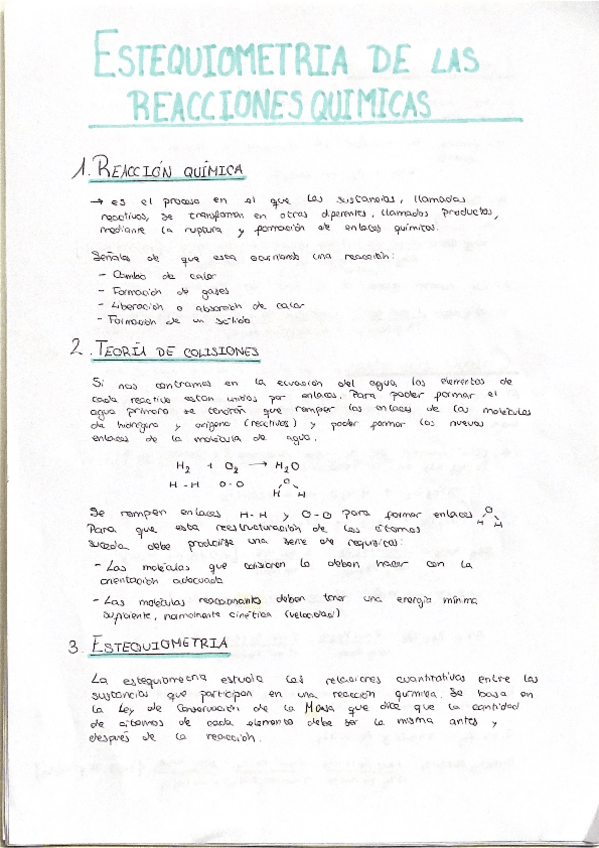 ESTEQUIOMETRIA DE LAS
REACCIONES QUIMICAS
1. REACCIÓN QUÍMICA
→ es el proceso en el que las sustancias, llamadas
reactivos, se transforman en otras diferentes, llamadas productos,
mediante la ruptura y formación de enlaces químicos.
Señales de que esta ocurriendo una reacción:
- Cambio de color
- Formación de gases
- Liberación o absorción de calor
- Formación de un sólido
2. TEORÍA DE COLISIONES
Si nos centramos en la ecuación del agua, los elementos de
cada reactivo están unidos por enlaces. Para poder formar el
agua primero se tendrán que romper los enlaces de las moléculas
de hidrógeno y oxígeno (reactivos) y poder formar los nuevos
enlaces de la molécula de agua.
H2 + O2 → H2O
H-H O-O O
H H
Se rompen enlaces H-H y O-O para formar enlaces O
H H
Para que esta reestructuración de los átomos
suceda debe producirse una serie de requisitos:
- Las moléculas que colisionen lo deben hacer con la
orientación adecuada
- Las moléculas reaccionantes deben tener una energía mínima
suficiente, normalmente cinética (velocidad)
3. ESTEQUIOMETRIA
La estequiometria estudia las relaciones cuantitativas entre las
sustancias que participan en una reacción química. Se basa en
la Ley de Conservación de la Masa que dice que la cantidad
de átomos de cada elemento debe ser la misma antes y
después de la reacción.